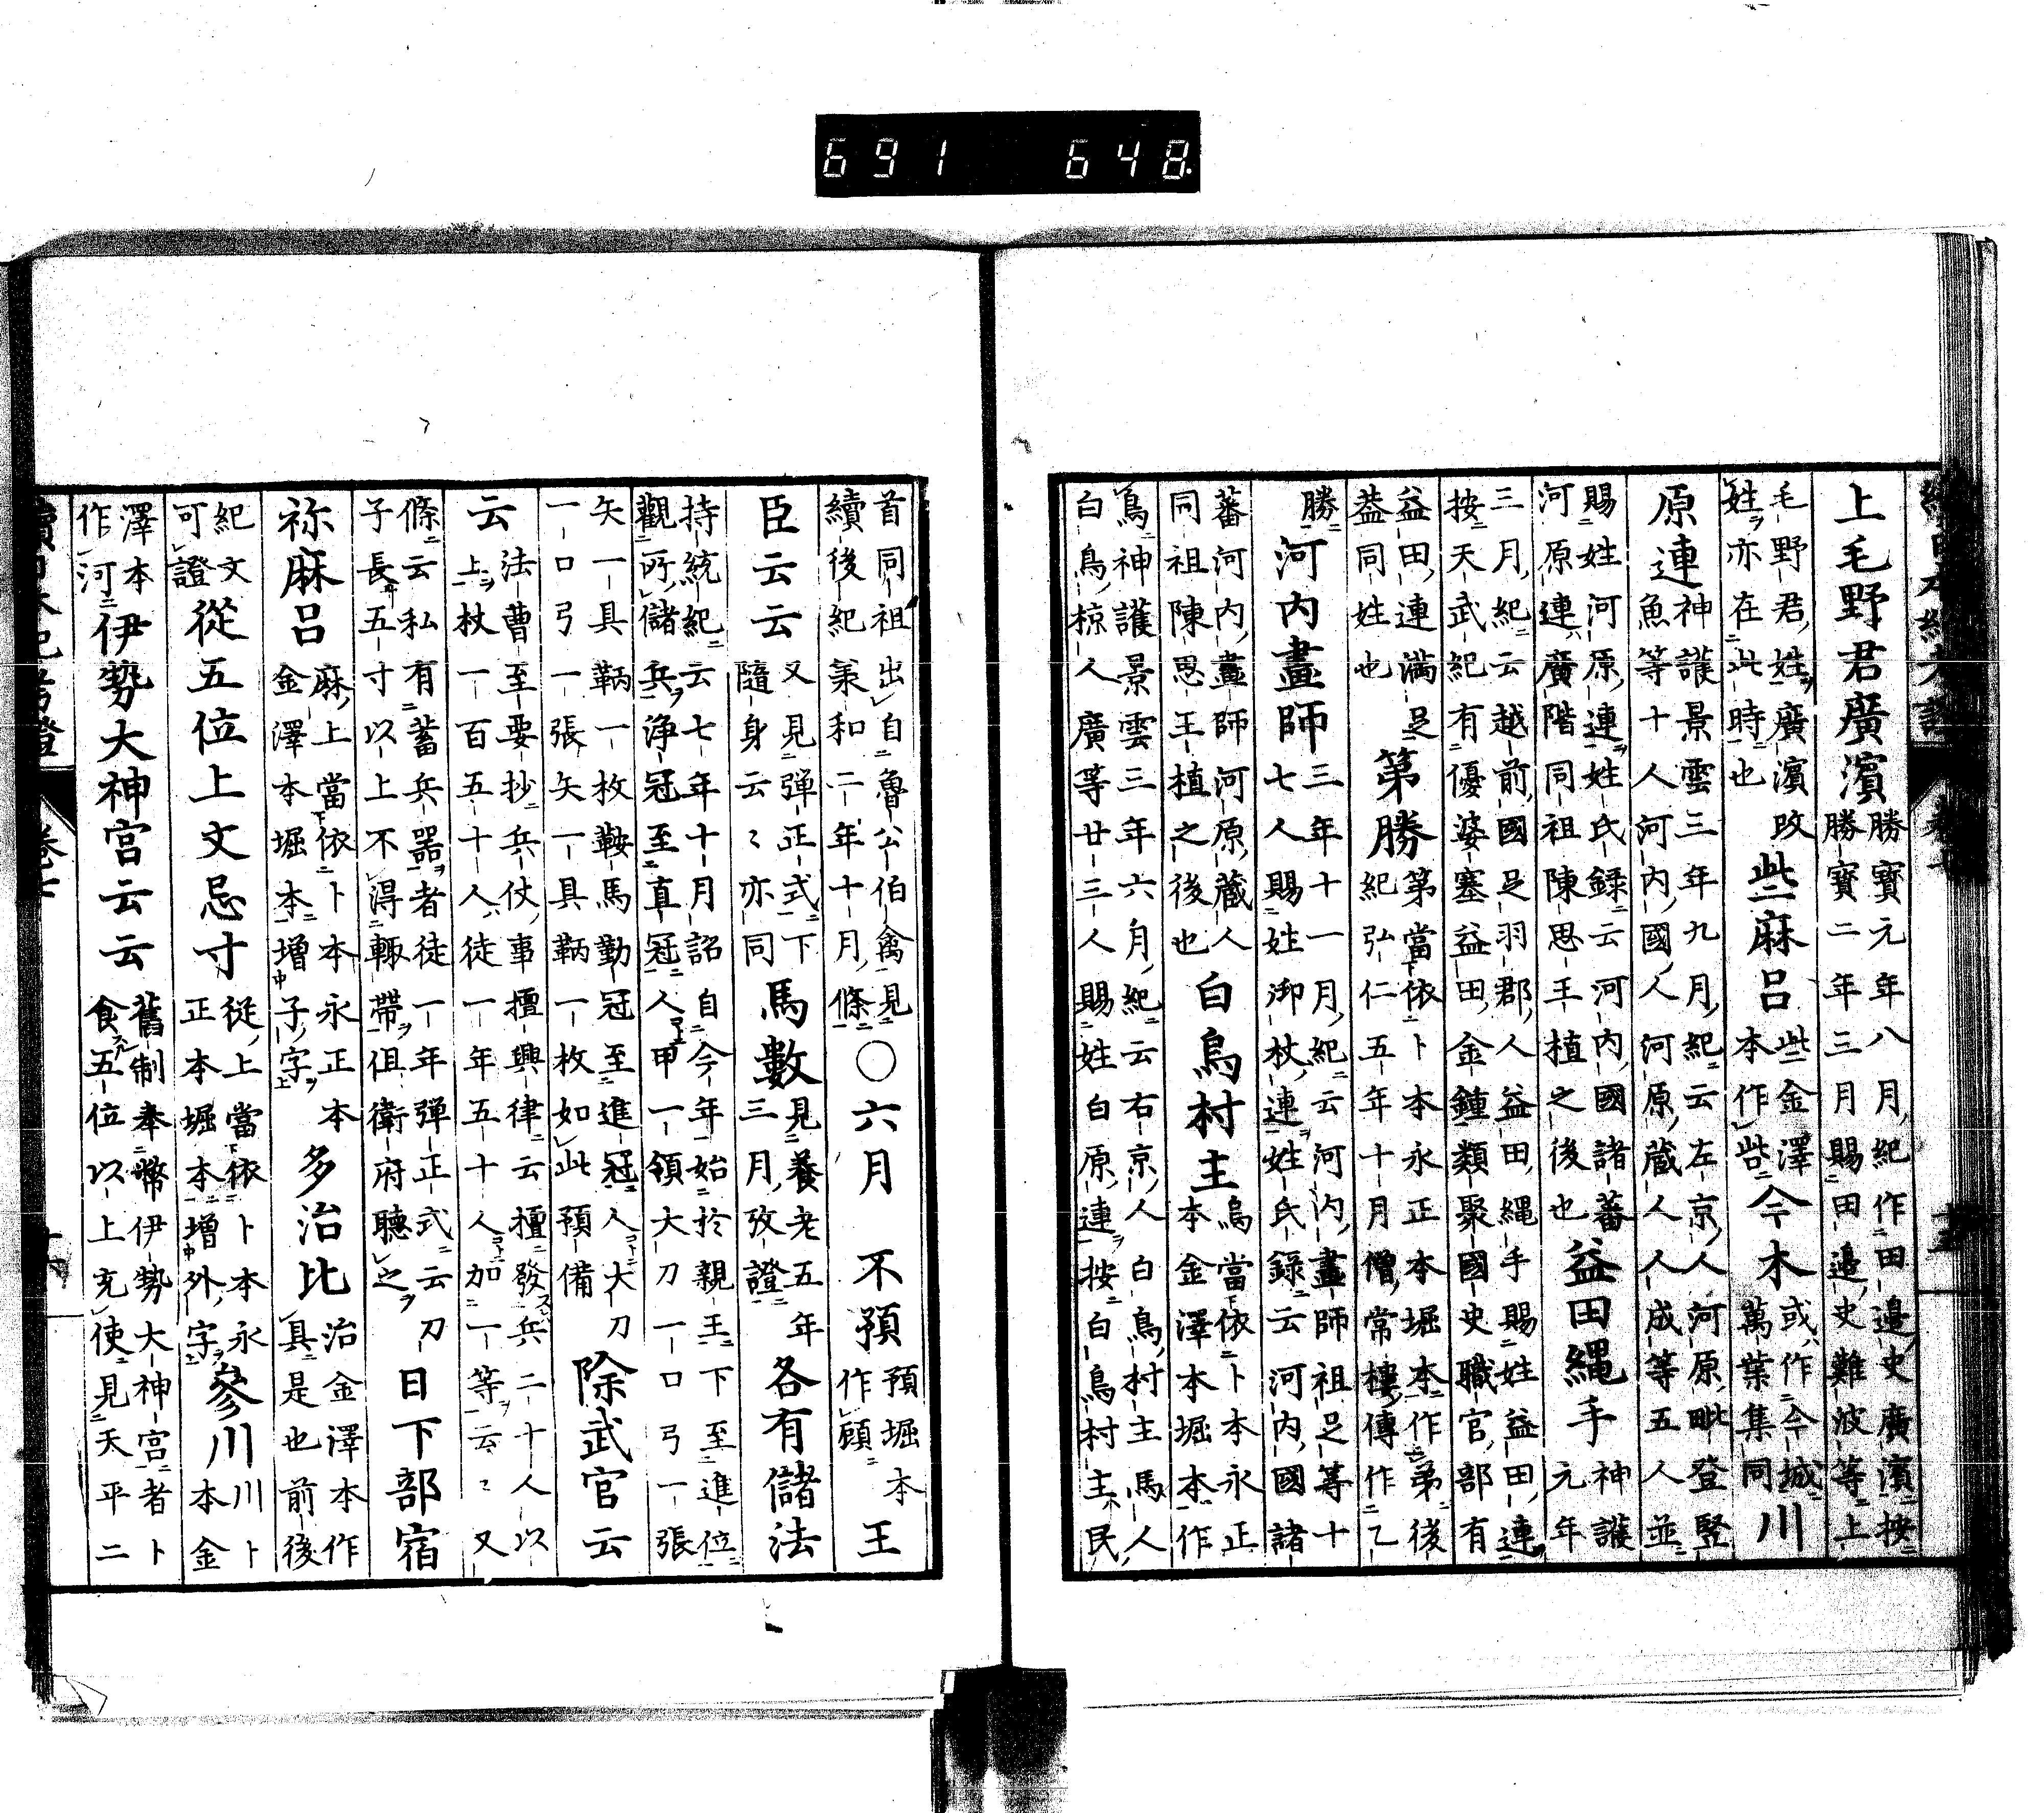 691 648
上毛野君廣濱 勝寶元年八月紀作田邉史廣濱按
勝寶二年三月賜田邉史難波等上
毛野君姓廣濱改
姓亦在此時也 些麻呂 些金澤
本作些 今木 或作今城
萬葉集同 川
原連 神護景雲三年九月紀云左京人河原毗登堅
魚等十人河内國人河原蔵人人成等五人並
賜姓河原連姓氏録云河内國諸蕃
河原連廣階同祖陳思王植之後也 益田縄手 神護
元年
三月紀云越前國足羽郡人益田縄手賜姓益田連
按天武紀有優婆塞益田金鍾類聚國史職官部有
益田連満足
葢同姓也 第勝 第當依卜本永正本堀本作弟後
紀弘仁五年十月僧常樓傳作乙
勝 河内畫師 三年十一月紀云河内畫師祖足等十
七人賜姓御杖連姓氏録云河内國諸
蕃河内畫師河原蔵人
同祖陳思王植之後也 白烏村主 烏當依卜本永正
本金澤本堀本作
鳥神護景雲三年六月紀云右京人白鳥村主馬人
白鳥椋人廣等廿三人賜姓白原連按白鳥村主民
首同祖出自魯公伯禽見
續後紀羕和二年十月條 ○六月 不預 預堀本
作顧 王
臣云云 又見弾正式下
隨身云〻亦同 馬數 見養老五年
三月攷證 各有儲法
持統紀云七年十月詔自今年始於親王下至進位
觀所儲兵浄冠至直冠人甲一領大刀一口弓一張
矢一具鞆一枚鞍馬勤冠至進冠人大刀
一口弓一張矢一具鞆一枚如此預備 除武官云
云 法曹至要抄兵仗事擅興律云擅發兵二十人以
上杖一百五十人徒一年五十人加一等云〻又
條云私有蓄兵器者徒一年弾正式云刀
子長五寸以上不得輙帶但衛府聽之 日下部宿
祢麻呂 麻上當依卜本永正本
金澤本堀本増子字 多治比 治金澤本作
真是也前後
紀文
可證 從五位上文忌寸 從上當依卜本永
正本堀本増外字 參川 川卜
本金
澤本
作河 伊勢大神宮云云 舊制奉幣伊勢大神宮者卜
食五位以上充使見天平二